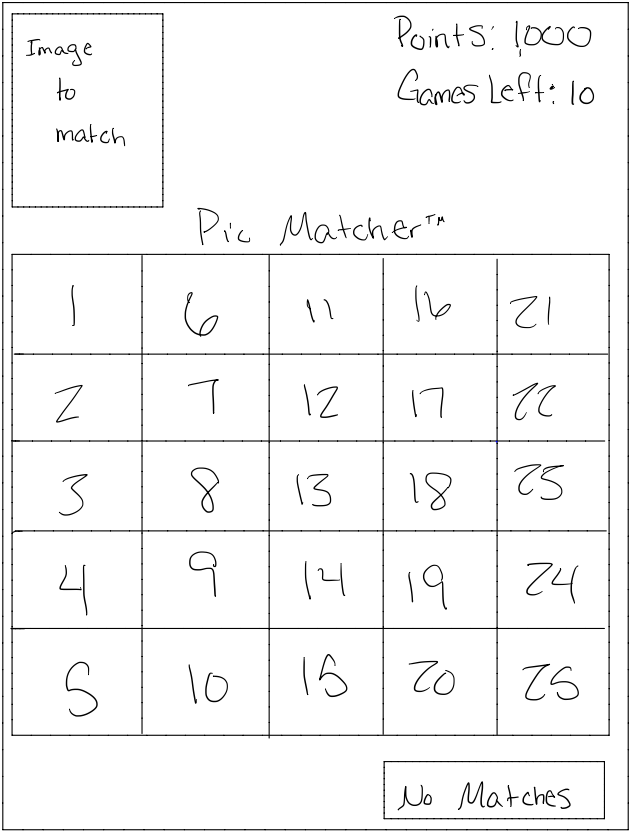 Image
to
match
Points: 1,000
Games Left: 10
Pic Matcher™
1 6 11 16 21
2 7 12 17 22
3 8 13 18 23
4 9 14 19 24
5 10 15 20 25
No Matches